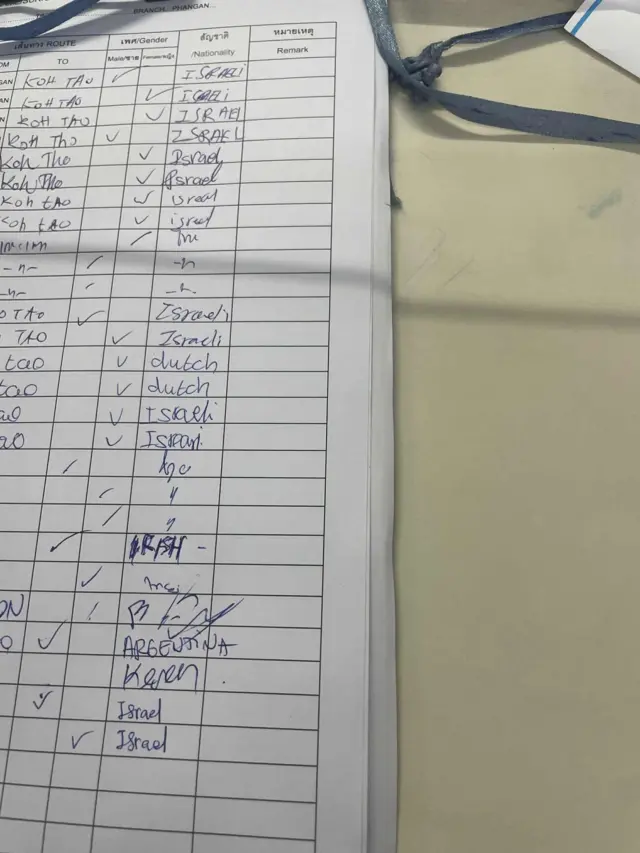 BRANCH PHANGAN
เส้นทาง ROUTE เพศ/Gender สัญชาติ หมายเหตุ
OM TO Male/ชาย Female/หญิง /Nationality Remark
GAN KOH TAO ✓ ISRAELI
AN KOH TAO ✓ ISRAELI
N KOH TAO ✓ ISRAEL
KOH Tho ✓ ISRAEL
Koh Tho ✓ Israel
Koh Tho ✓ Israel
Koh tAO ✓ Israel
Koh tAO ✓ israel
/ ไทย
-n- / -n
-n- / -n-
O TAO ✓ Israeli
TAO ✓ Israeli
tao ✓ dutch
tao ✓ dutch
ao ✓ Israeli
ao ✓ Israeli
/ ไทย
/ "
/ "
✓ IRISH -
✓ ไทย
ON /
O ✓ ARGENTINA
✓ Israel
✓ Israel